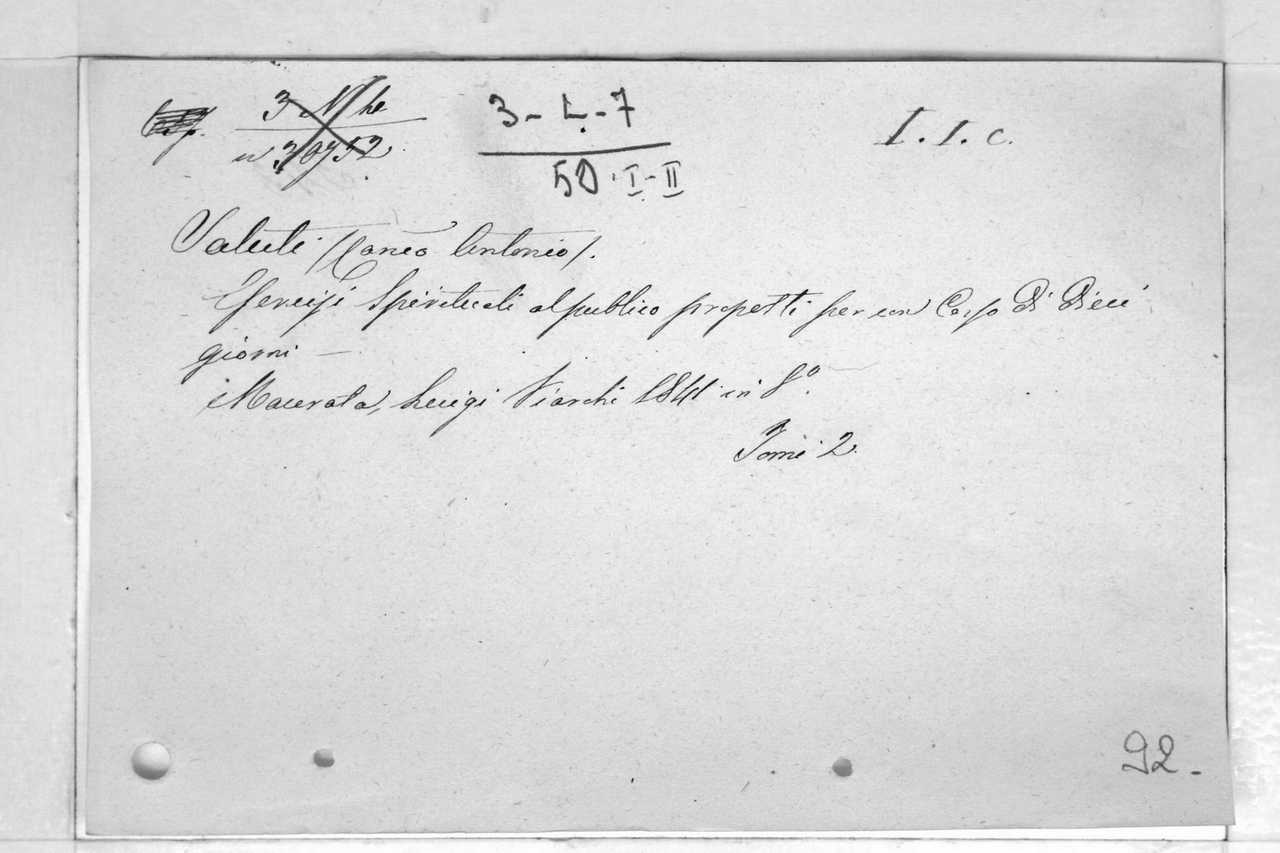 3-L-7
50·I-II
I. I. c.
Saluti (Canco Antonio).
Esercizi Spirituali al publico proposti per un Corso di Dieci
giorni —
Macerata, Luigi Viarchi 1841 in 8°.
Tomi 2.
92-